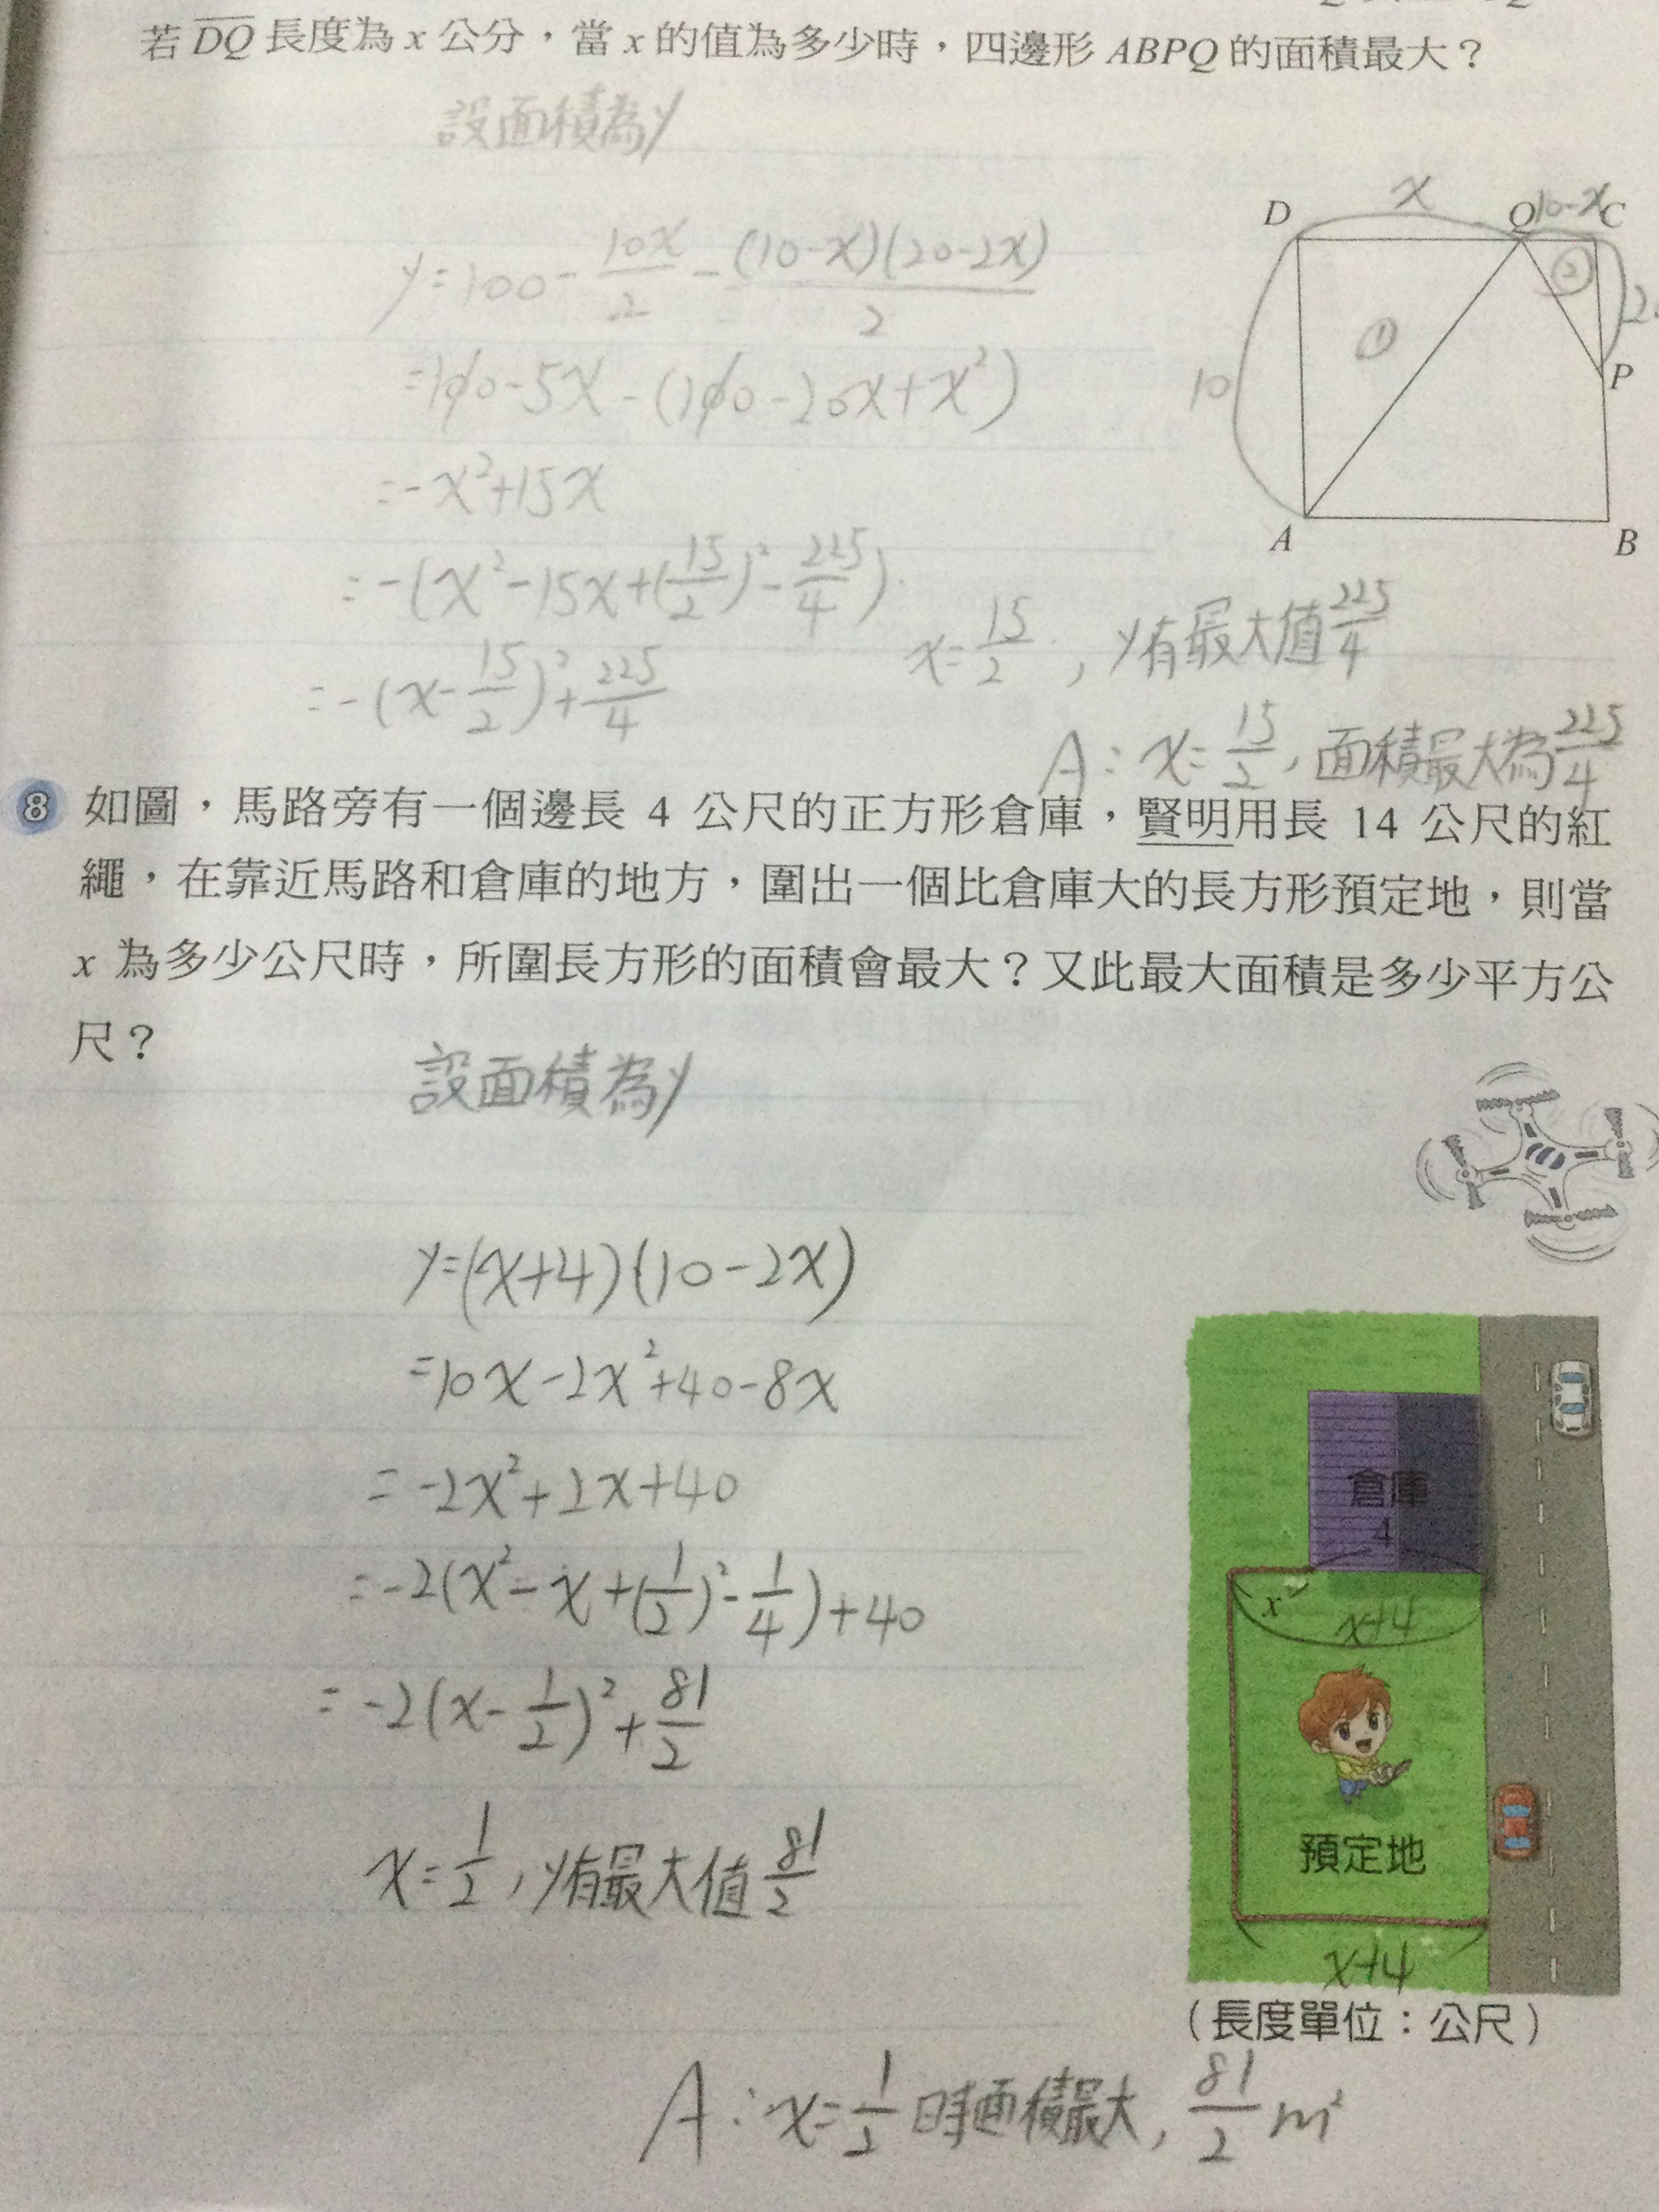 若 DQ 長度為 x 公分，當 x 的值為多少時，四邊形 ABPQ 的面積最大？
設面積為y
y=100-10x/2-(10-x)(20-2x)/2
=100-5x-(100-20x+x²)
=-x²+15x
=-(x²-15x+(15/2)²-225/4)
=-(x-15/2)²+225/4
x=15/2，y有最大值225/4
A：x=15/2，面積最大為225/4
x
10-x
D
Q
C
②
①
10
P
A
B
⑧ 如圖，馬路旁有一個邊長 4 公尺的正方形倉庫，賢明用長 14 公尺的紅
繩，在靠近馬路和倉庫的地方，圍出一個比倉庫大的長方形預定地，則當
x 為多少公尺時，所圍長方形的面積會最大？又此最大面積是多少平方公
尺？
設面積為y
y=(x+4)(10-2x)
=10x-2x²+40-8x
=-2x²+2x+40
=-2(x²-x+(1/2)²-1/4)+40
=-2(x-1/2)²+81/2
x=1/2，y有最大值81/2
倉庫
4
x
x+4
預定地
x+4
（長度單位：公尺）
A：x=1/2時面積最大，81/2 m²